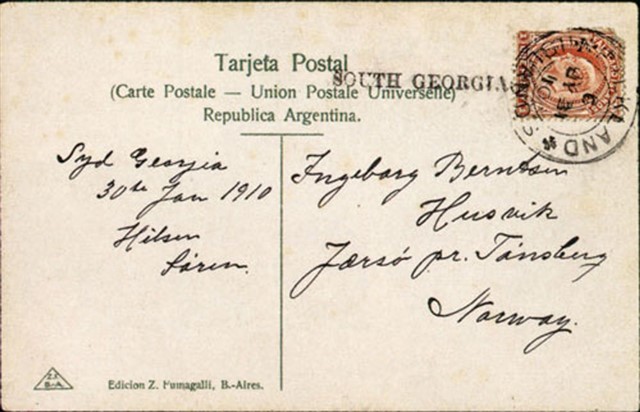 Tarjeta Postal
(Carte Postale — Union Postale Universelle)
Republica Argentina.
SOUTH GEORGIA
Syd Georgia
30te Jan 1910
Hilsen
Sören.
Ingeborg Berntsen
Husvik
Jærsö pr. Tönsberg
Norway.
Z.F.
B.-A.
Edicion Z. Fumagalli, B.-Aires.